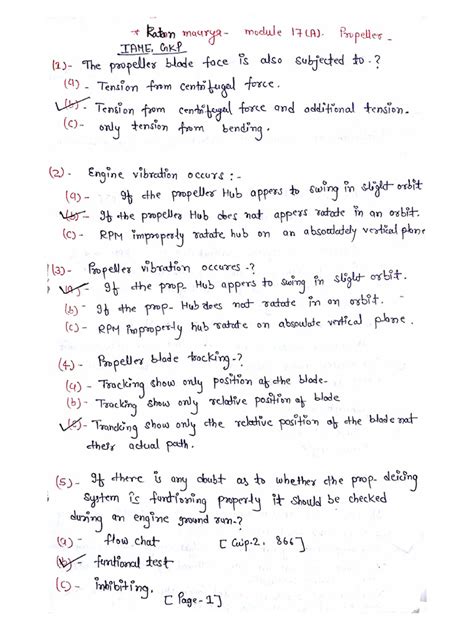 * Ratan maurya- module 17(A). Propeller-
IAME, GKP
(1)- The propeller blade face is also subjected to-?
(a)- Tension from centrifugal force.
(b)- Tension from centrifugal force and additional tension.
(c)- only tension from bending.
(2)- Engine vibration occurs :-
(a)- If the propeller Hub appers to swing in slight orbit
(b)- If the propeller Hub does not appers ratate in an orbit.
(c)- RPM improperly ratate hub on an absoulately vertical plane
(3)- Propeller vibration occures-?
(a)- If the prop- Hub appers to swing in slight orbit.
(b)- If the prop- Hub does not ratate in on orbit.
(c)- RPM improperly hub ratate on absoulate vertical plane.
(4)- Propeller blade tracking-?
(a)- Tracking show only position of the blade-
(b)- Tracking show only relative position of blade
(c)- Trancking show only the relative position of the blade not
their actual path.
(5)- If there is any doubt as to whether the prop- deicing
system is funtioning properly it should be checked
during an engine ground run-?
(a)- flow chat [Cuip-2. 866]
(b)- funtional test
(c)- inbibiting.
[Page-1]